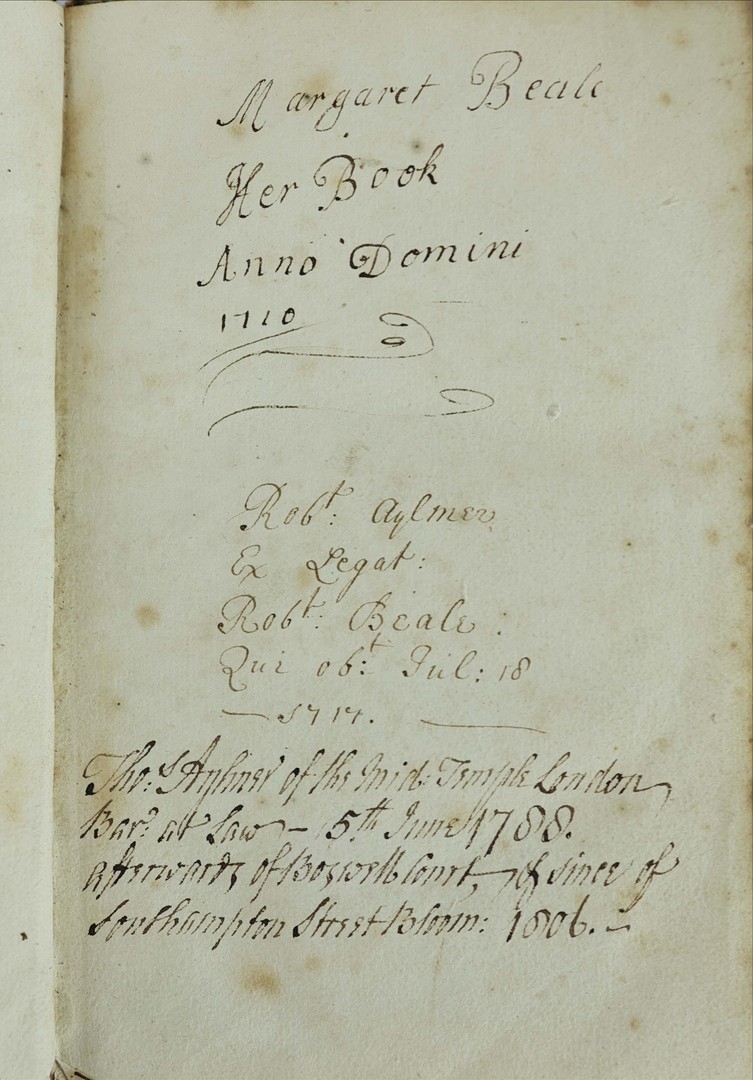 Margaret Beale
Her Book
Anno Domini
1710
Robt: Aylmer
Ex Legat:
Robt: Beale.
Qui obt: Jul: 18
— 1717. —
Thos: Aylmer of the Mid: Temple London
Barr at Law — 5th June 1788.
afterwards of Boswell Court, & since of
Southampton Street Bloom: 1806. —